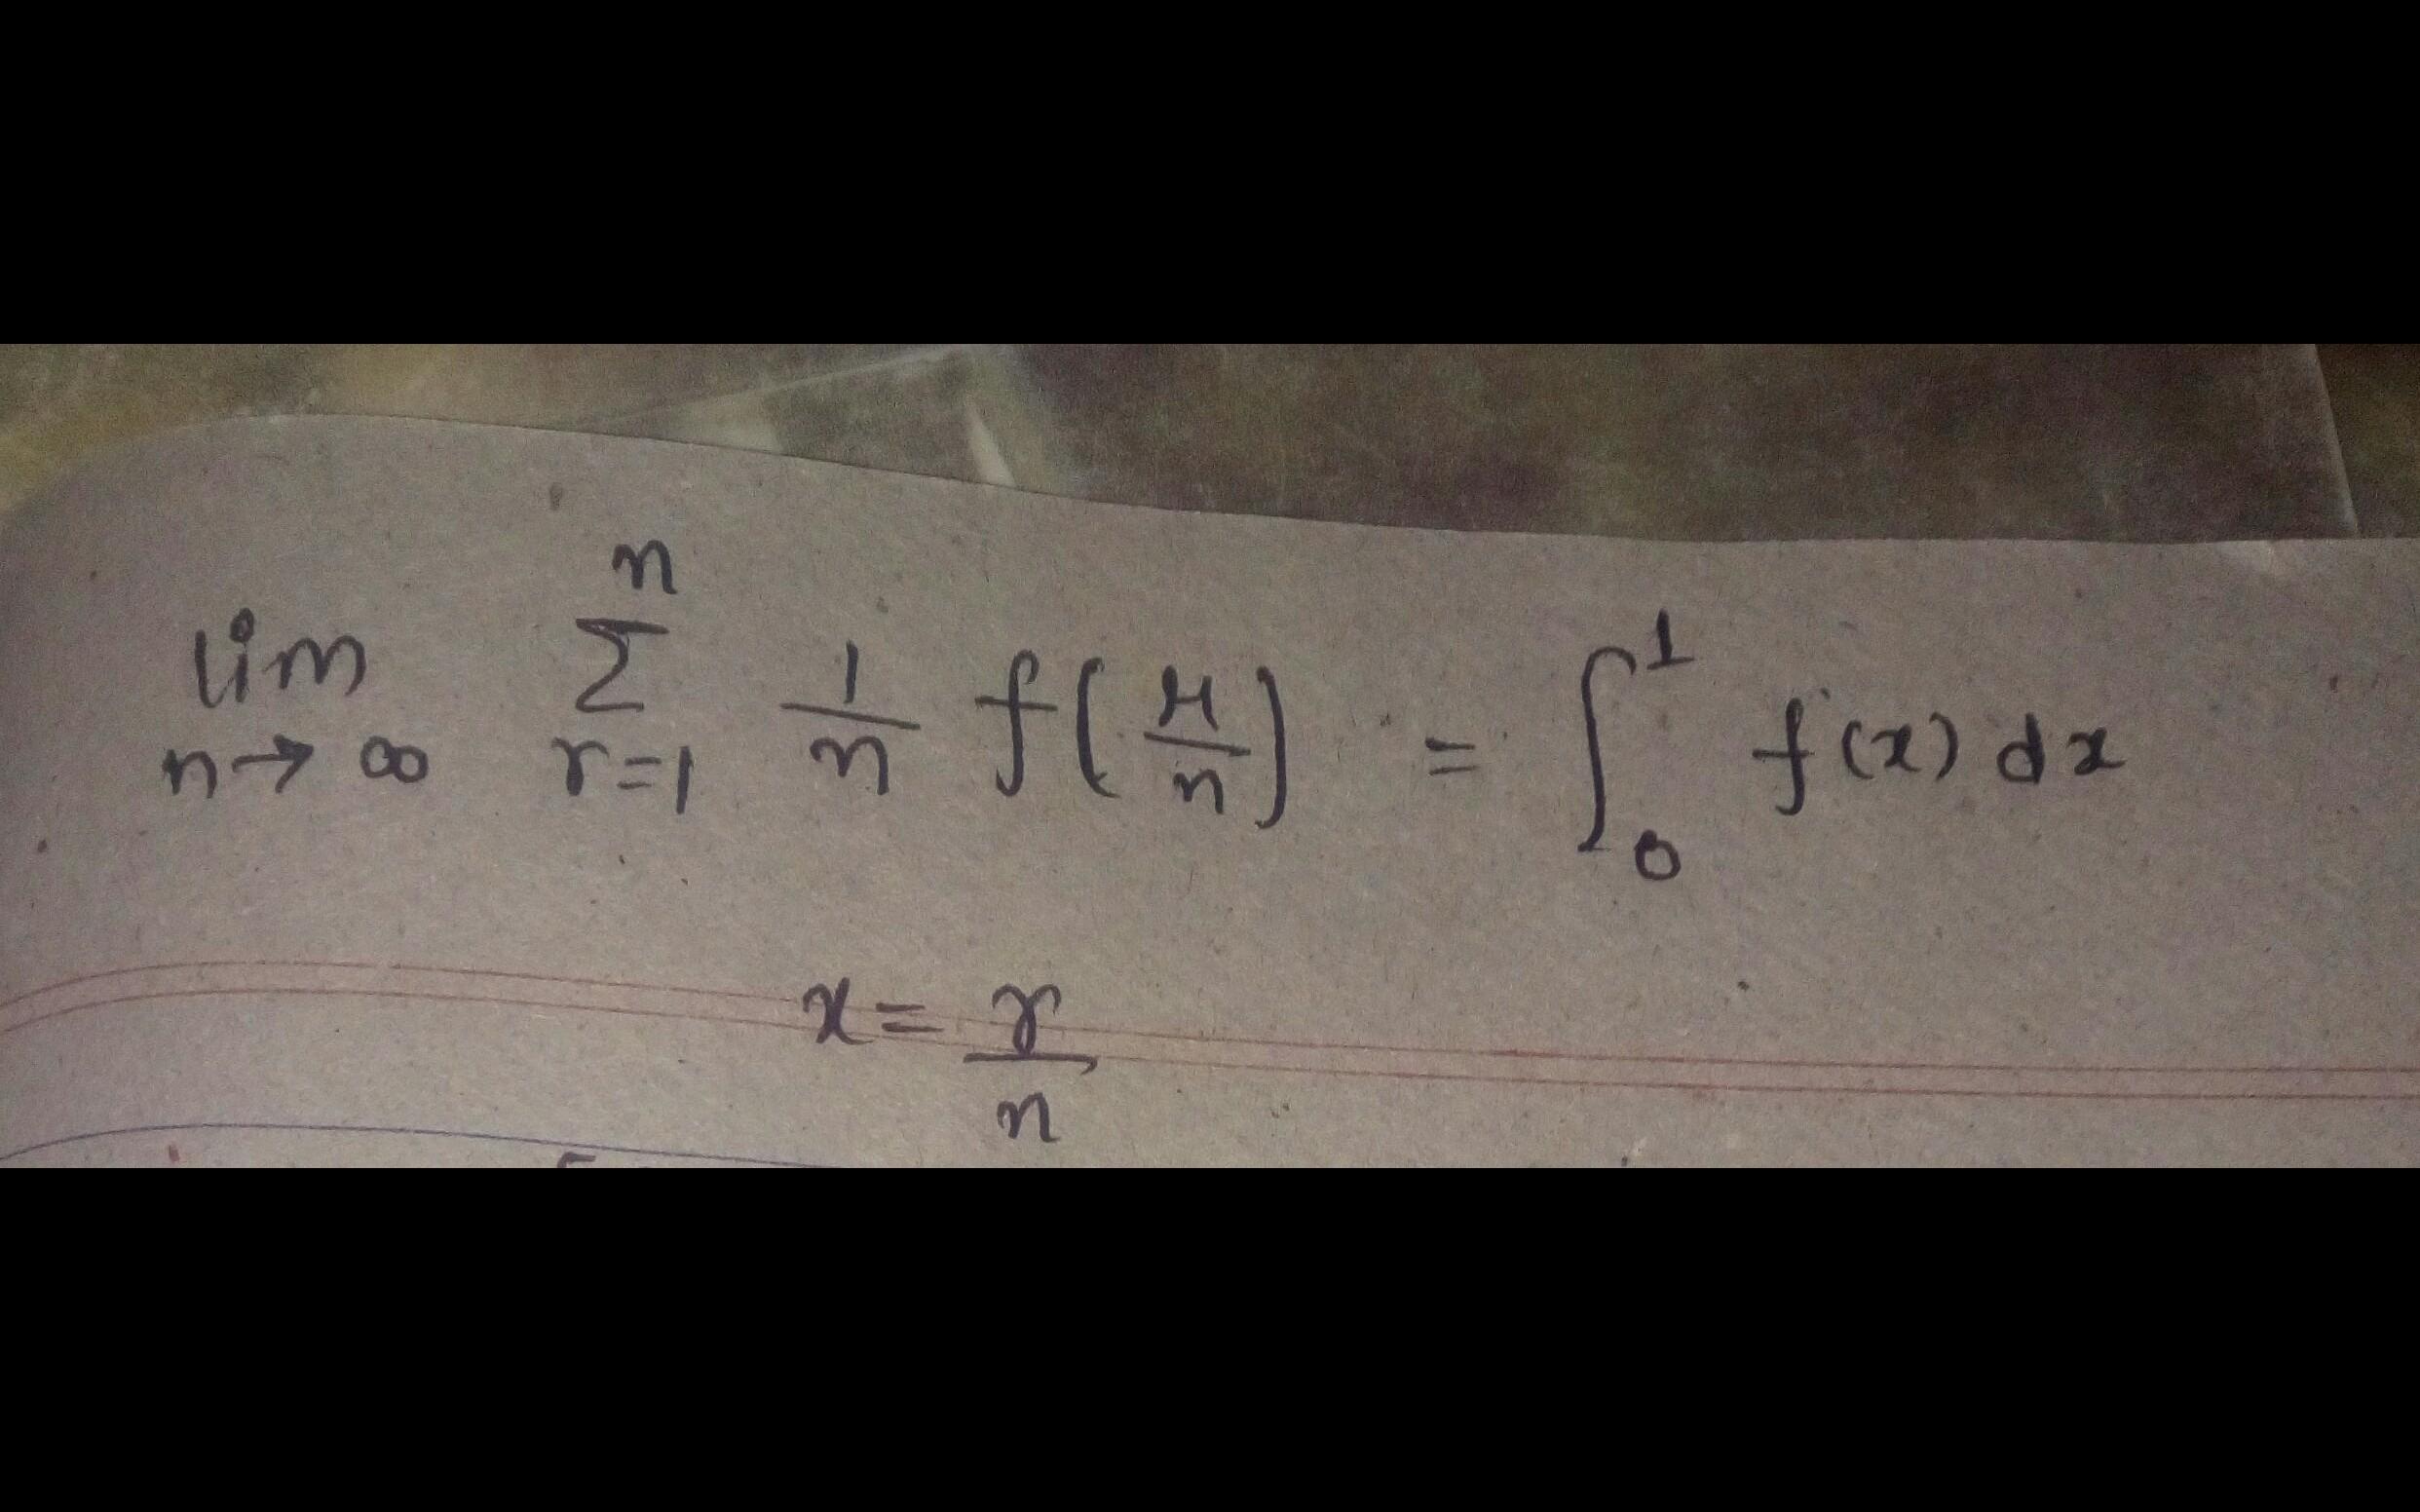 lim n→∞ n Σ r=1 1/n f(r/n) = ∫₀¹ f(x) dx
x = r/n